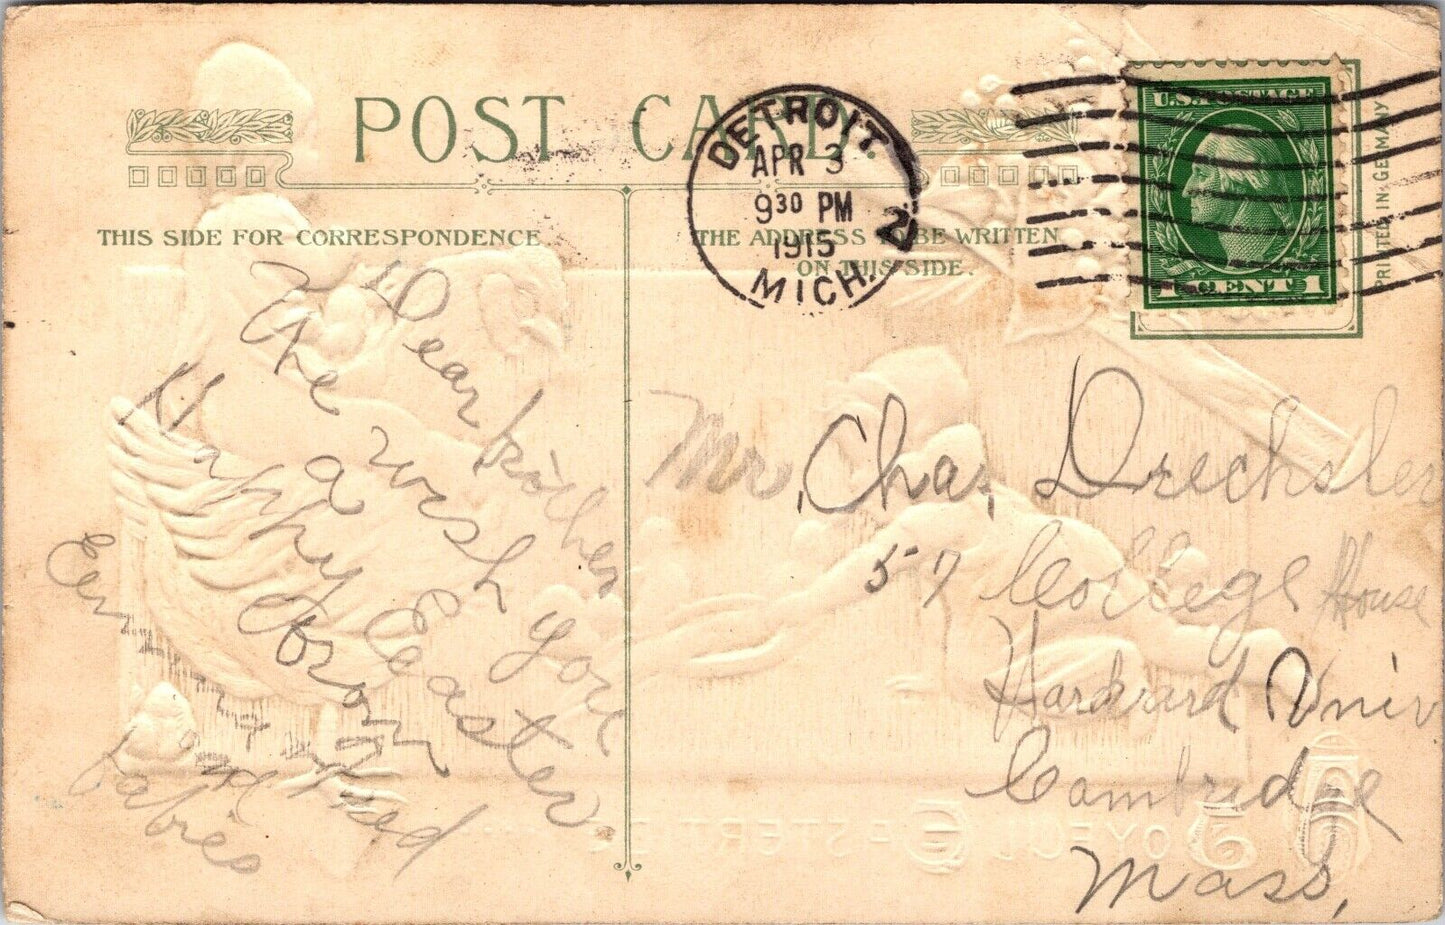 POST CARD.
THIS SIDE FOR CORRESPONDENCE
THE ADDRESS TO BE WRITTEN
ON THIS SIDE.
DETROIT.
APR 3
9 30 PM
1915
MICH.
2
U.S. POSTAGE
1 CENT 1
PRINTED IN GERMANY
Dear brother
We wish you
a
Happy Easter
From
Fred
and
babies
Mr, Chas, Drechsler
57 College House
Harvard Univ
Cambridge
Mass,
A JOYFUL EASTERTIDE